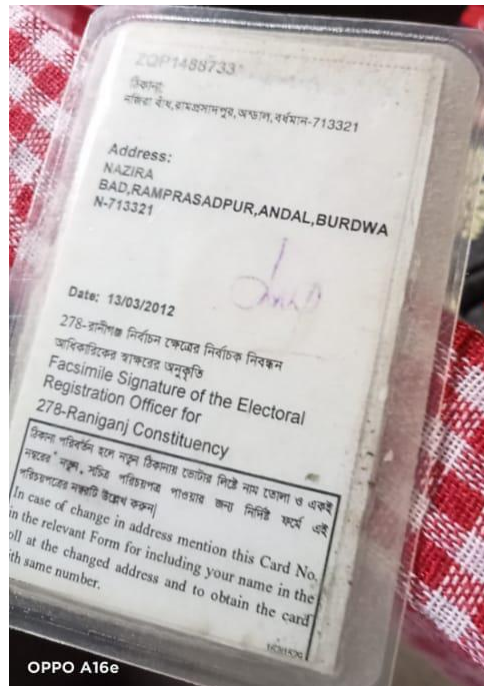 ZQP1488733
ঠিকানা:
নজিরা বাঁধ,রামপ্রসাদপুর,অন্ডাল,বর্ধমান-713321
Address:
NAZIRA
BAD,RAMPRASADPUR,ANDAL,BURDWA
N-713321
Date: 13/03/2012
278-রানীগঞ্জ নির্বাচন ক্ষেত্রের নির্বাচক নিবন্ধন
আধিকারিকের স্বাক্ষরের অনুকৃতি
Facsimile Signature of the Electoral
Registration Officer for
278-Raniganj Constituency
ঠিকানা পরিবর্তন হলে নতুন ঠিকানায় ভোটার লিষ্টে নাম তোলা ও একই
নম্বরের নতুন সচিত্র পরিচয়পত্র পাওয়ার জন্য নির্দিষ্ট ফর্মে এই
পরিচয়পত্রের নম্বরটি উল্লেখ করুন|
In case of change in address mention this Card No.
in the relevant Form for including your name in the
oll at the changed address and to obtain the card
ith same number.
OPPO A16e